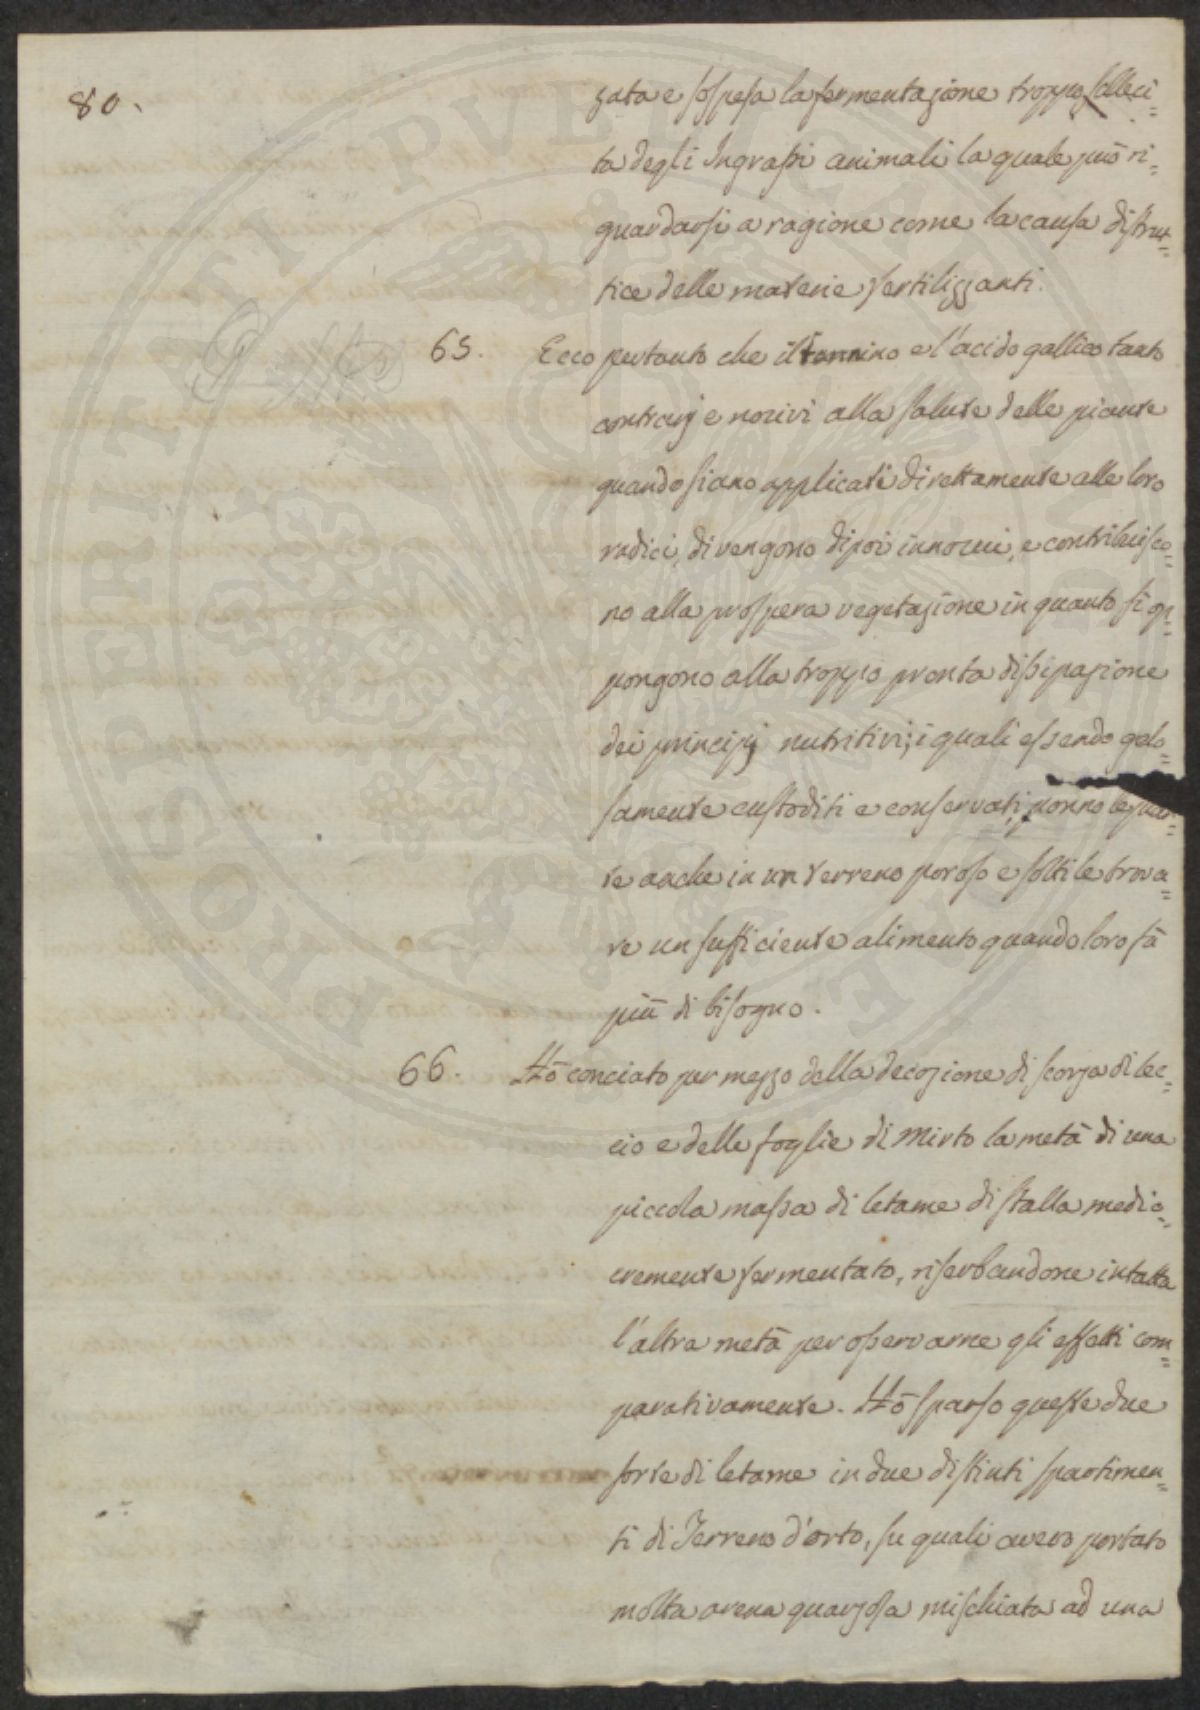 80.
zata e sospesa la fermentazione troppo solleci=
ta degli Ingrassi animali la quale può ri=
guardarsi a ragione come la causa distrut=
tice delle materie fertilizzanti.
65. Ecco pertanto che il tannino e l'acido gallico tanto
contrarj e nocivi alla salute delle piante
quando siano applicati direttamente alle loro
radici, divengono dipoi innocui, e contribuisco=
no alla prospera vegetazione in quanto si op=
pongono alla troppo pronta dissipazione
dei principj nutritivi; i quali essendo gelo=
samente custoditi e conservati, ponno le pian=
te anche in un terreno poroso e sottile trova=
re un sufficiente alimento quando loro fà
più di bisogno.
66. Hò conciato per mezzo della decozione di scorza di lec=
cio e delle foglie di Mirto la metà di una
piccola massa di letame di stalla medio=
cremente fermentato, riserbandone intatta
l'altra metà per osservarne gli effetti com=
parativamente. Hò sparso queste due
sorte di letame in due distinti spartimen=
ti di Terreno d'orto, su quali avevo portato
molta arena quarzosa mischiata ad una
PROSPERITATI PVBLICAE AVGENDAE